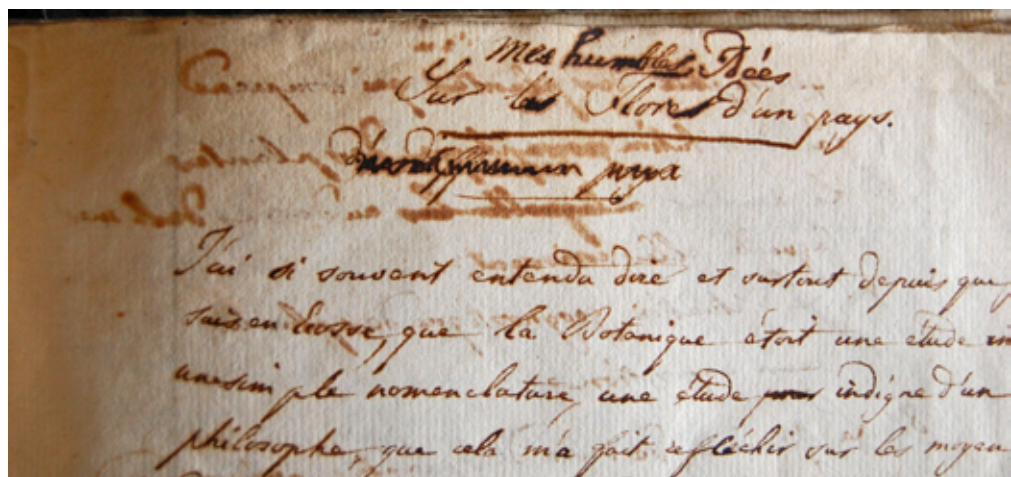 Mes humbles Idées
Sur les Flores d'un pays.
pays
J'ai si souvent entendu dire et surtout depuis que
suis en Ecosse, que la Botanique étoit une étude
une simple nomenclature, une étude indigne d'un
philosophe, que cela m'a fait réfléchir sur les moyen